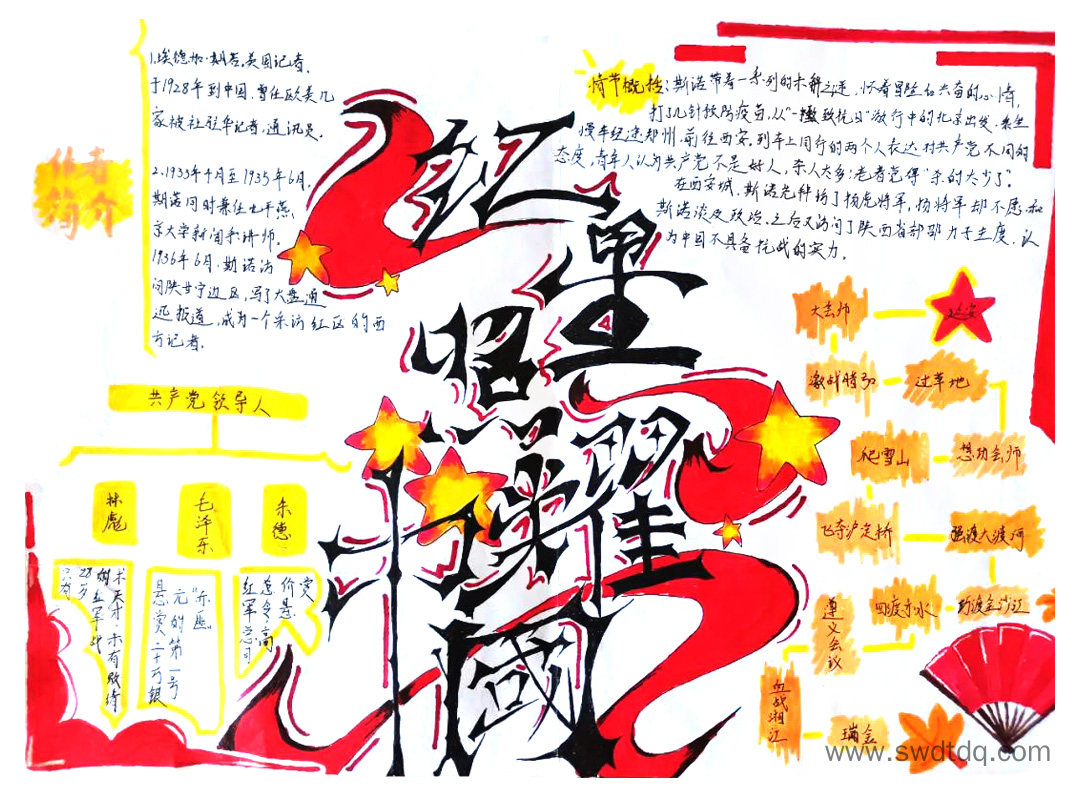 红星照耀中国
作者
简介
1.埃德加·斯诺,美国记者,
于1928年到中国,曾任欧美几
家报社驻华记者,通讯员.
2.1933年4月至1935年6月,
斯诺同时兼任北平燕
京大学新闻系讲师.
1936年6月,斯诺访
问陕甘宁边区,写了大量通
迅报道,成为一个采访红区的西
方记者.
情节概括:斯诺带着一系列的未解之迷,怀着冒险和兴奋的心情,
打了几针预防疫苗,从"一撤
放行中的北京出发,乘坐
慢车经过郑州,前往西安,到车上同行的两个人表达对共产党不同的
态度,青年人认为共产党不是好人,杀人太多;老者觉得"杀的太少了".
在西安城,斯诺先拜访了杨虎将军,杨将军却不愿和
斯诺谈及政治.之后又访问了陕西省
主席,认
为中国不具备抗战的实力.
共产党领导人
林彪
毛泽东
朱德
只有
28岁
的红军战
术天才,未有败绩
悬赏二十万银
元的第一号
"赤匪"
红军总司
令高
价悬
赏
大会师
延安
激战腊子口
过草地
爬雪山
懋功会师
飞夺泸定桥
强渡大渡河
遵义会议
四渡赤水
巧渡金沙江
血战湘江
瑞金
www.swdtdq.com